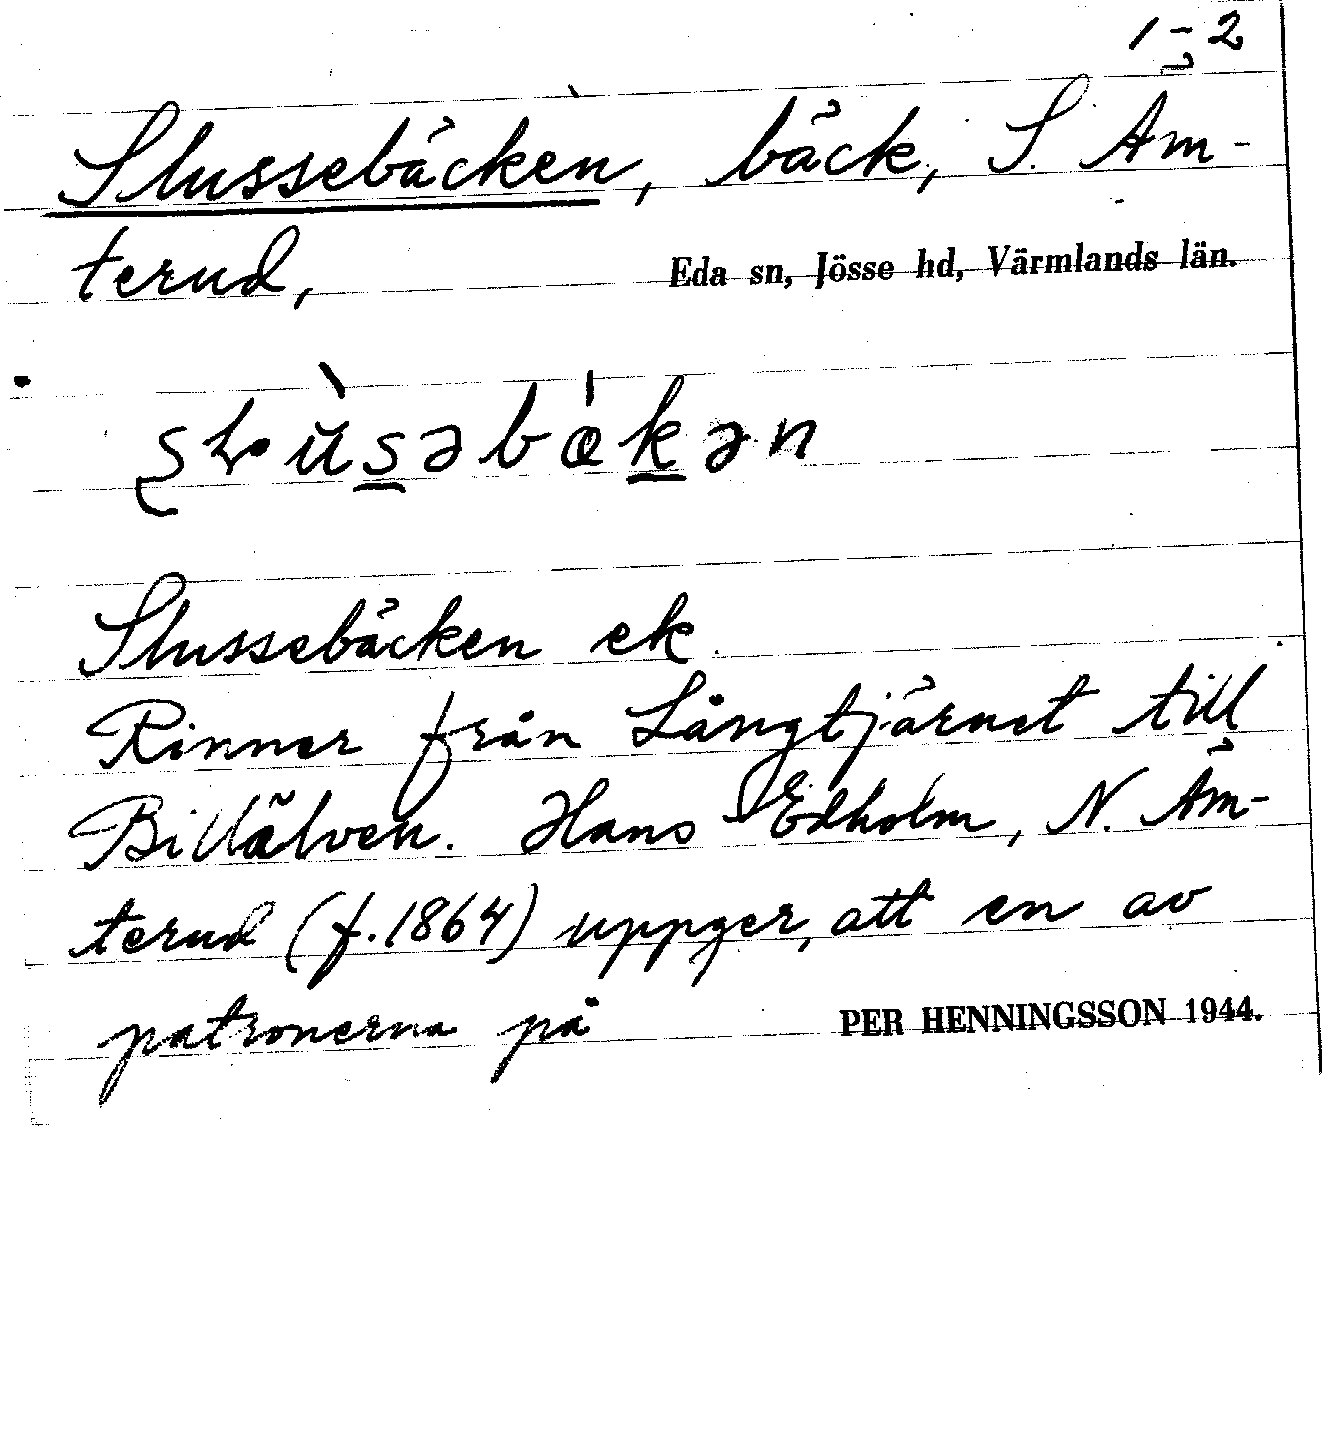 1-2
Slussebäcken, bäck, S. Äm-
terud,
Eda sn, Jösse hd, Värmlands län.
Slussebäcken ek.
Rinner från Långtjärnet till
Billälven. Hans Edholm, N. Äm-
terud (f. 1864) uppger, att en av
patronerna på
PER HENNINGSSON 1944.